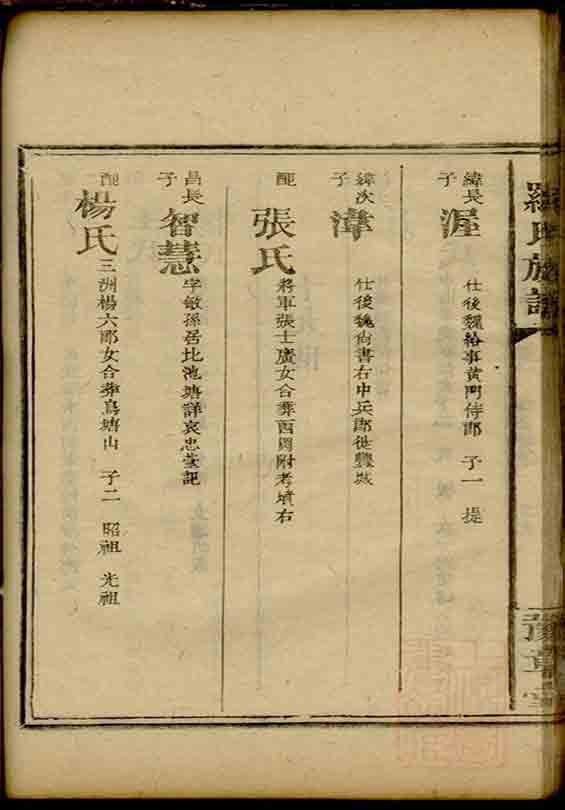 羅氏族譜
豫章堂
緯長子 渥 仕後魏給事黃門侍郎 子一 提
緯次子 湋 仕後魏尚書右中兵郎徙豐城
配 張氏 將軍張士廣女合葬西岡附考墳右
昌長子 智慧 字敏孫居北池塘詳哀忠堂記
配 楊氏 三洲楊六郎女合葬烏塘山 子二 昭祖 光祖